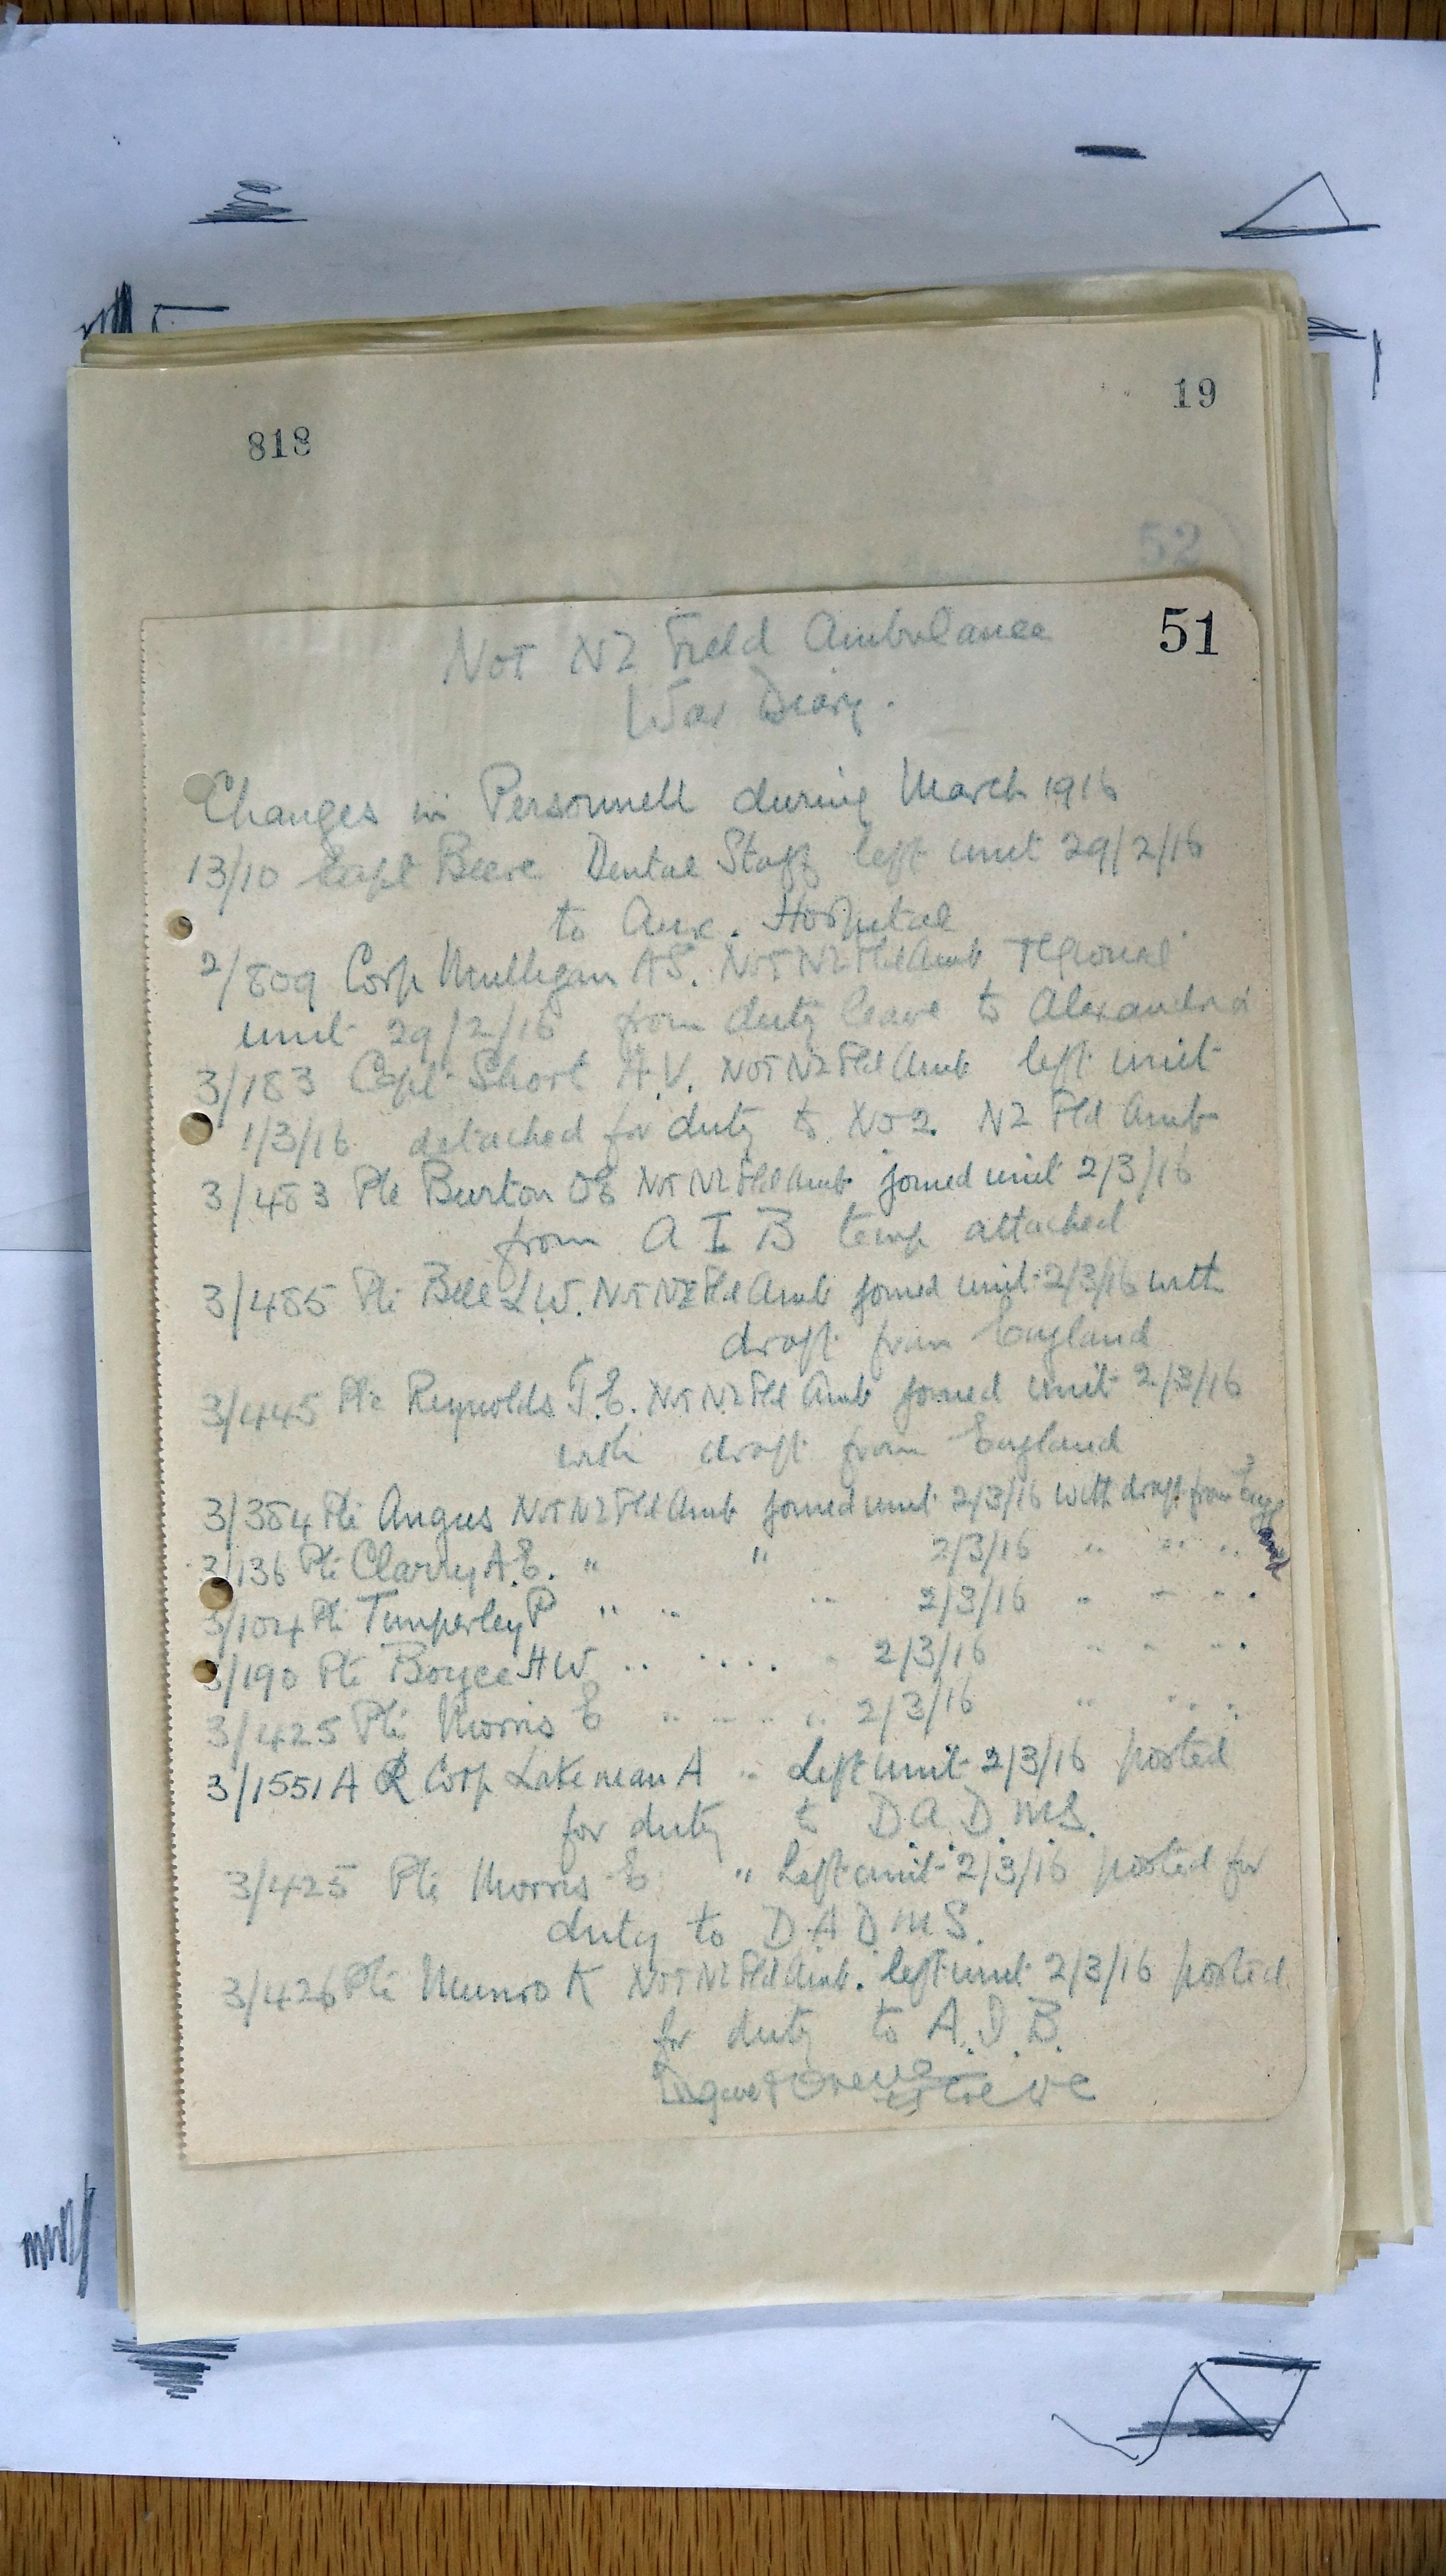 19
818
52
51
No1 NZ Field Ambulance
War Diary.
Changes in Personnell during March 1916
13/10 Capt Beere Dental Staff left unit 29/2/16
to Aux. Hospital
2/809 Corp Mulligan AS. No1 NZ Fld Amb rejoined
unit 29/2/16 from duty leave to Alexandria
3/183 Capt Short A.V. No1 NZ Fld Amb left unit
1/3/16 detached for duty to No 2. NZ Fld Amb
3/483 Pte Burton OE No1 NZ Fld Amb joined unit 2/3/16
from A I B temp attached
3/485 Pte Bell LW. No1 NZ Fld Amb joined unit 2/3/16 with
draft from England
3/445 Pte Reynolds T.E. No1 NZ Fld Amb joined unit 2/3/16
with draft from England
3/384 Pte Angus No1 NZ Fld Amb joined unit 2/3/16 with draft from Engl
and
3/136 Pte Clarry A.E. " " 2/3/16 " " "
3/104 Pte Timperley P " " " 2/3/16 " " "
3/190 Pte Boyce HW " " " " 2/3/16 " " "
3/425 Pte Morris E " " " " 2/3/16 " " "
3/1551A L Corp Lakeman A " Left unit 2/3/16 posted
for duty to D.A.D.M.S.
3/425 Pte Morris E " Left unit 2/3/16 posted for
duty to D.A.D.M.S.
3/426 Pte Munro K No1 NZ Fld Amb. left unit 2/3/16 posted
for duty to A.I.B.